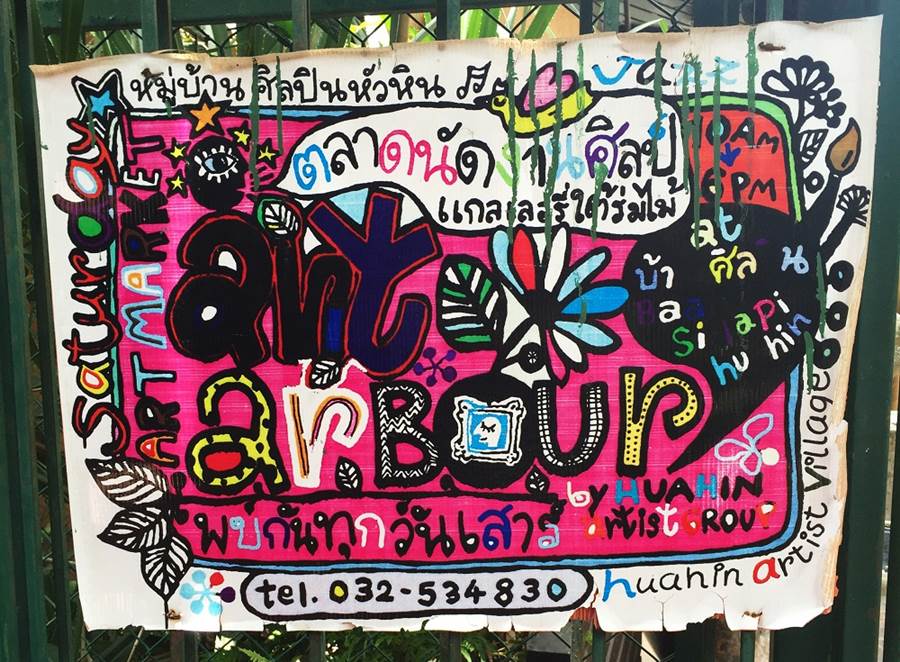 หมู่บ้าน ศิลปินหัวหิน
Saturday
ART MARKET
ตลาดนัดงานศิลป์
แกลเลอรี่ใต้ร่มไม้
10AM
6PM
at
บ้านศิลปิน
Baan
Silapin
hua hin
art
arBour
by HUAHIN
artist GROUP
พบกันทุกวันเสาร์
tel. 032-534830
huahin artist village